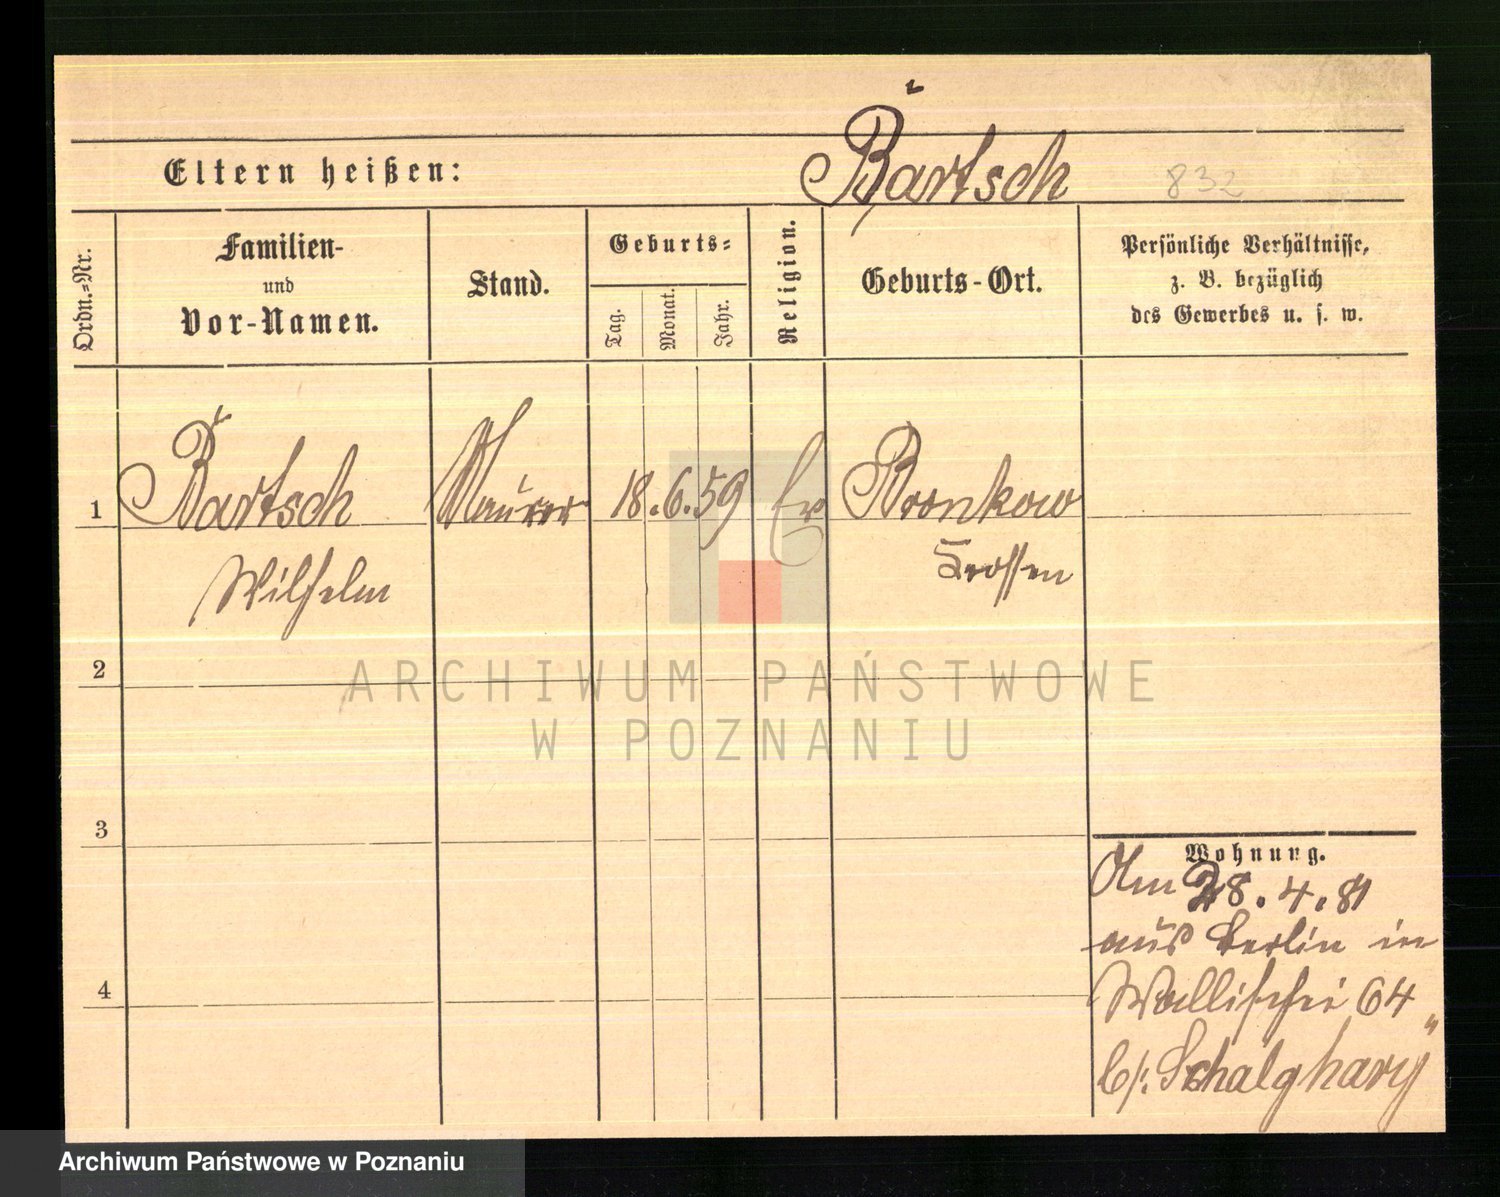 Bartsch
Eltern heißen:
832
Ordn.=Nr.
Familien-
und
Vor-Namen.
Stand.
Geburts=
Tag.
Monat.
Jahr.
Religion.
Geburts-Ort.
Persönliche Verhältnisse,
z. B. bezüglich
des Gewerbes u. s. w.
1 Bartsch Maurer 18.6.59 Ev Bronkow
Wilhelm Krossen
2
ARCHIWUM PAŃSTWOWE
W POZNANIU
3
Wohnung.
Am 28.4.81
aus Berlin in
4
Wallischei 64
b/.
Archiwum Państwowe w Poznaniu